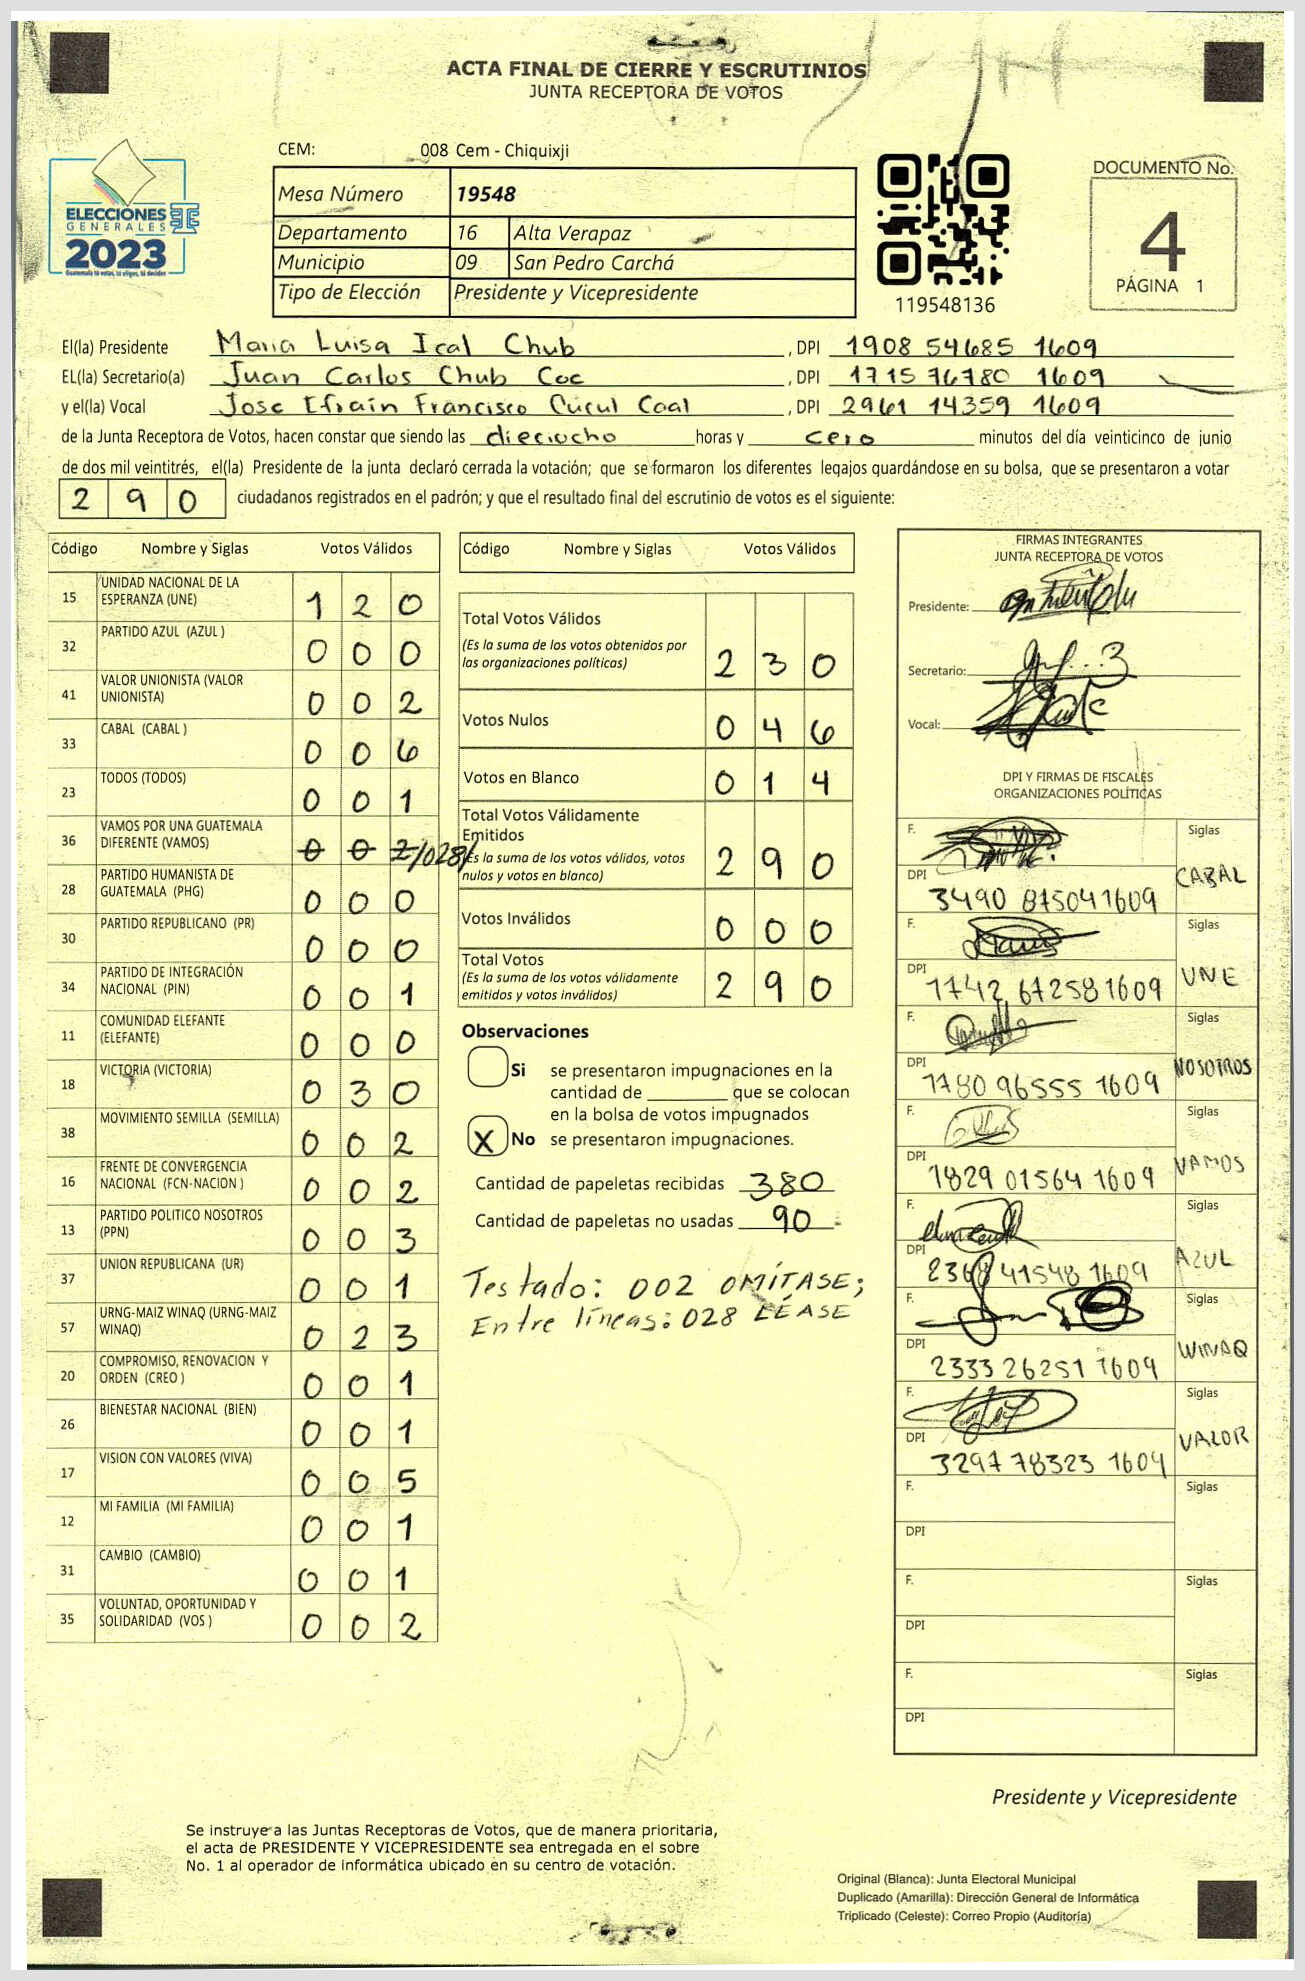 ACTA FINAL DE CIERRE Y ESCRUTINIOS
JUNTA RECEPTORA DE VOTOS
ELECCIONES
GENERALES
2023
Guatemala tú votas, tú eliges, tú decides
CEM: 008 Cem - Chiquixji
Mesa Número 19548
Departamento 16 Alta Verapaz
Municipio 09 San Pedro Carchá
Tipo de Elección Presidente y Vicepresidente
119548136
DOCUMENTO No.
4
PÁGINA 1
El(la) Presidente Maria Luisa Ical Chub , DPI 1908 54685 1609
EL(la) Secretario(a) Juan Carlos Chub Coc , DPI 1715 76780 1609
y el(la) Vocal Jose Efrain Francisco Cucul Caal , DPI 2961 14359 1609
de la Junta Receptora de Votos, hacen constar que siendo las dieciocho horas y cero minutos del día veinticinco de junio
de dos mil veintitrés, el(la) Presidente de la junta declaró cerrada la votación; que se formaron los diferentes legajos guardándose en su bolsa, que se presentaron a votar
290 ciudadanos registrados en el padrón; y que el resultado final del escrutinio de votos es el siguiente:
Código Nombre y Siglas Votos Válidos
15 UNIDAD NACIONAL DE LA ESPERANZA (UNE) 120
32 PARTIDO AZUL (AZUL ) 000
41 VALOR UNIONISTA (VALOR UNIONISTA) 002
33 CABAL (CABAL ) 006
23 TODOS (TODOS) 001
36 VAMOS POR UNA GUATEMALA DIFERENTE (VAMOS) 002/028/
28 PARTIDO HUMANISTA DE GUATEMALA (PHG) 000
30 PARTIDO REPUBLICANO (PR) 000
34 PARTIDO DE INTEGRACIÓN NACIONAL (PIN) 001
11 COMUNIDAD ELEFANTE (ELEFANTE) 000
18 VICTORIA (VICTORIA) 030
38 MOVIMIENTO SEMILLA (SEMILLA) 002
16 FRENTE DE CONVERGENCIA NACIONAL (FCN-NACION ) 002
13 PARTIDO POLITICO NOSOTROS (PPN) 003
37 UNION REPUBLICANA (UR) 001
57 URNG-MAIZ WINAQ (URNG-MAIZ WINAQ) 023
20 COMPROMISO, RENOVACION Y ORDEN (CREO ) 001
26 BIENESTAR NACIONAL (BIEN) 001
17 VISION CON VALORES (VIVA) 005
12 MI FAMILIA (MI FAMILIA) 001
31 CAMBIO (CAMBIO) 001
35 VOLUNTAD, OPORTUNIDAD Y SOLIDARIDAD (VOS ) 002
Código Nombre y Siglas Votos Válidos
Total Votos Válidos
(Es la suma de los votos obtenidos por
las organizaciones políticas) 230
Votos Nulos 046
Votos en Blanco 014
Total Votos Válidamente
Emitidos
(Es la suma de los votos válidos, votos
nulos y votos en blanco) 290
Votos Inválidos 000
Total Votos
(Es la suma de los votos válidamente
emitidos y votos inválidos) 290
Observaciones
Si se presentaron impugnaciones en la
cantidad de ________ que se colocan
en la bolsa de votos impugnados
X No se presentaron impugnaciones.
Cantidad de papeletas recibidas 380
Cantidad de papeletas no usadas 90
Testado: 002 OMÍTASE;
Entre líneas: 028 LÉASE
FIRMAS INTEGRANTES
JUNTA RECEPTORA DE VOTOS
Presidente:
Secretario:
Vocal:
DPI Y FIRMAS DE FISCALES
ORGANIZACIONES POLÍTICAS
F. Siglas
DPI 3490 87504 1609 CABAL
F. Siglas
DPI 1742 67258 1609 UNE
F. Siglas
DPI 1780 96555 1609 NOSOTROS
F. Siglas
DPI 1829 01564 1609 VAMOS
F. Siglas
DPI 2368 41548 1609 AZUL
F. Siglas
DPI 2333 26251 1609 WINAQ
F. Siglas
DPI 3297 78323 1609 VALOR
F. Siglas
DPI
F. Siglas
DPI
F. Siglas
DPI
Presidente y Vicepresidente
Se instruye a las Juntas Receptoras de Votos, que de manera prioritaria,
el acta de PRESIDENTE Y VICEPRESIDENTE sea entregada en el sobre
No. 1 al operador de informática ubicado en su centro de votación.
Original (Blanca): Junta Electoral Municipal
Duplicado (Amarilla): Dirección General de Informática
Triplicado (Celeste): Correo Propio (Auditoría)